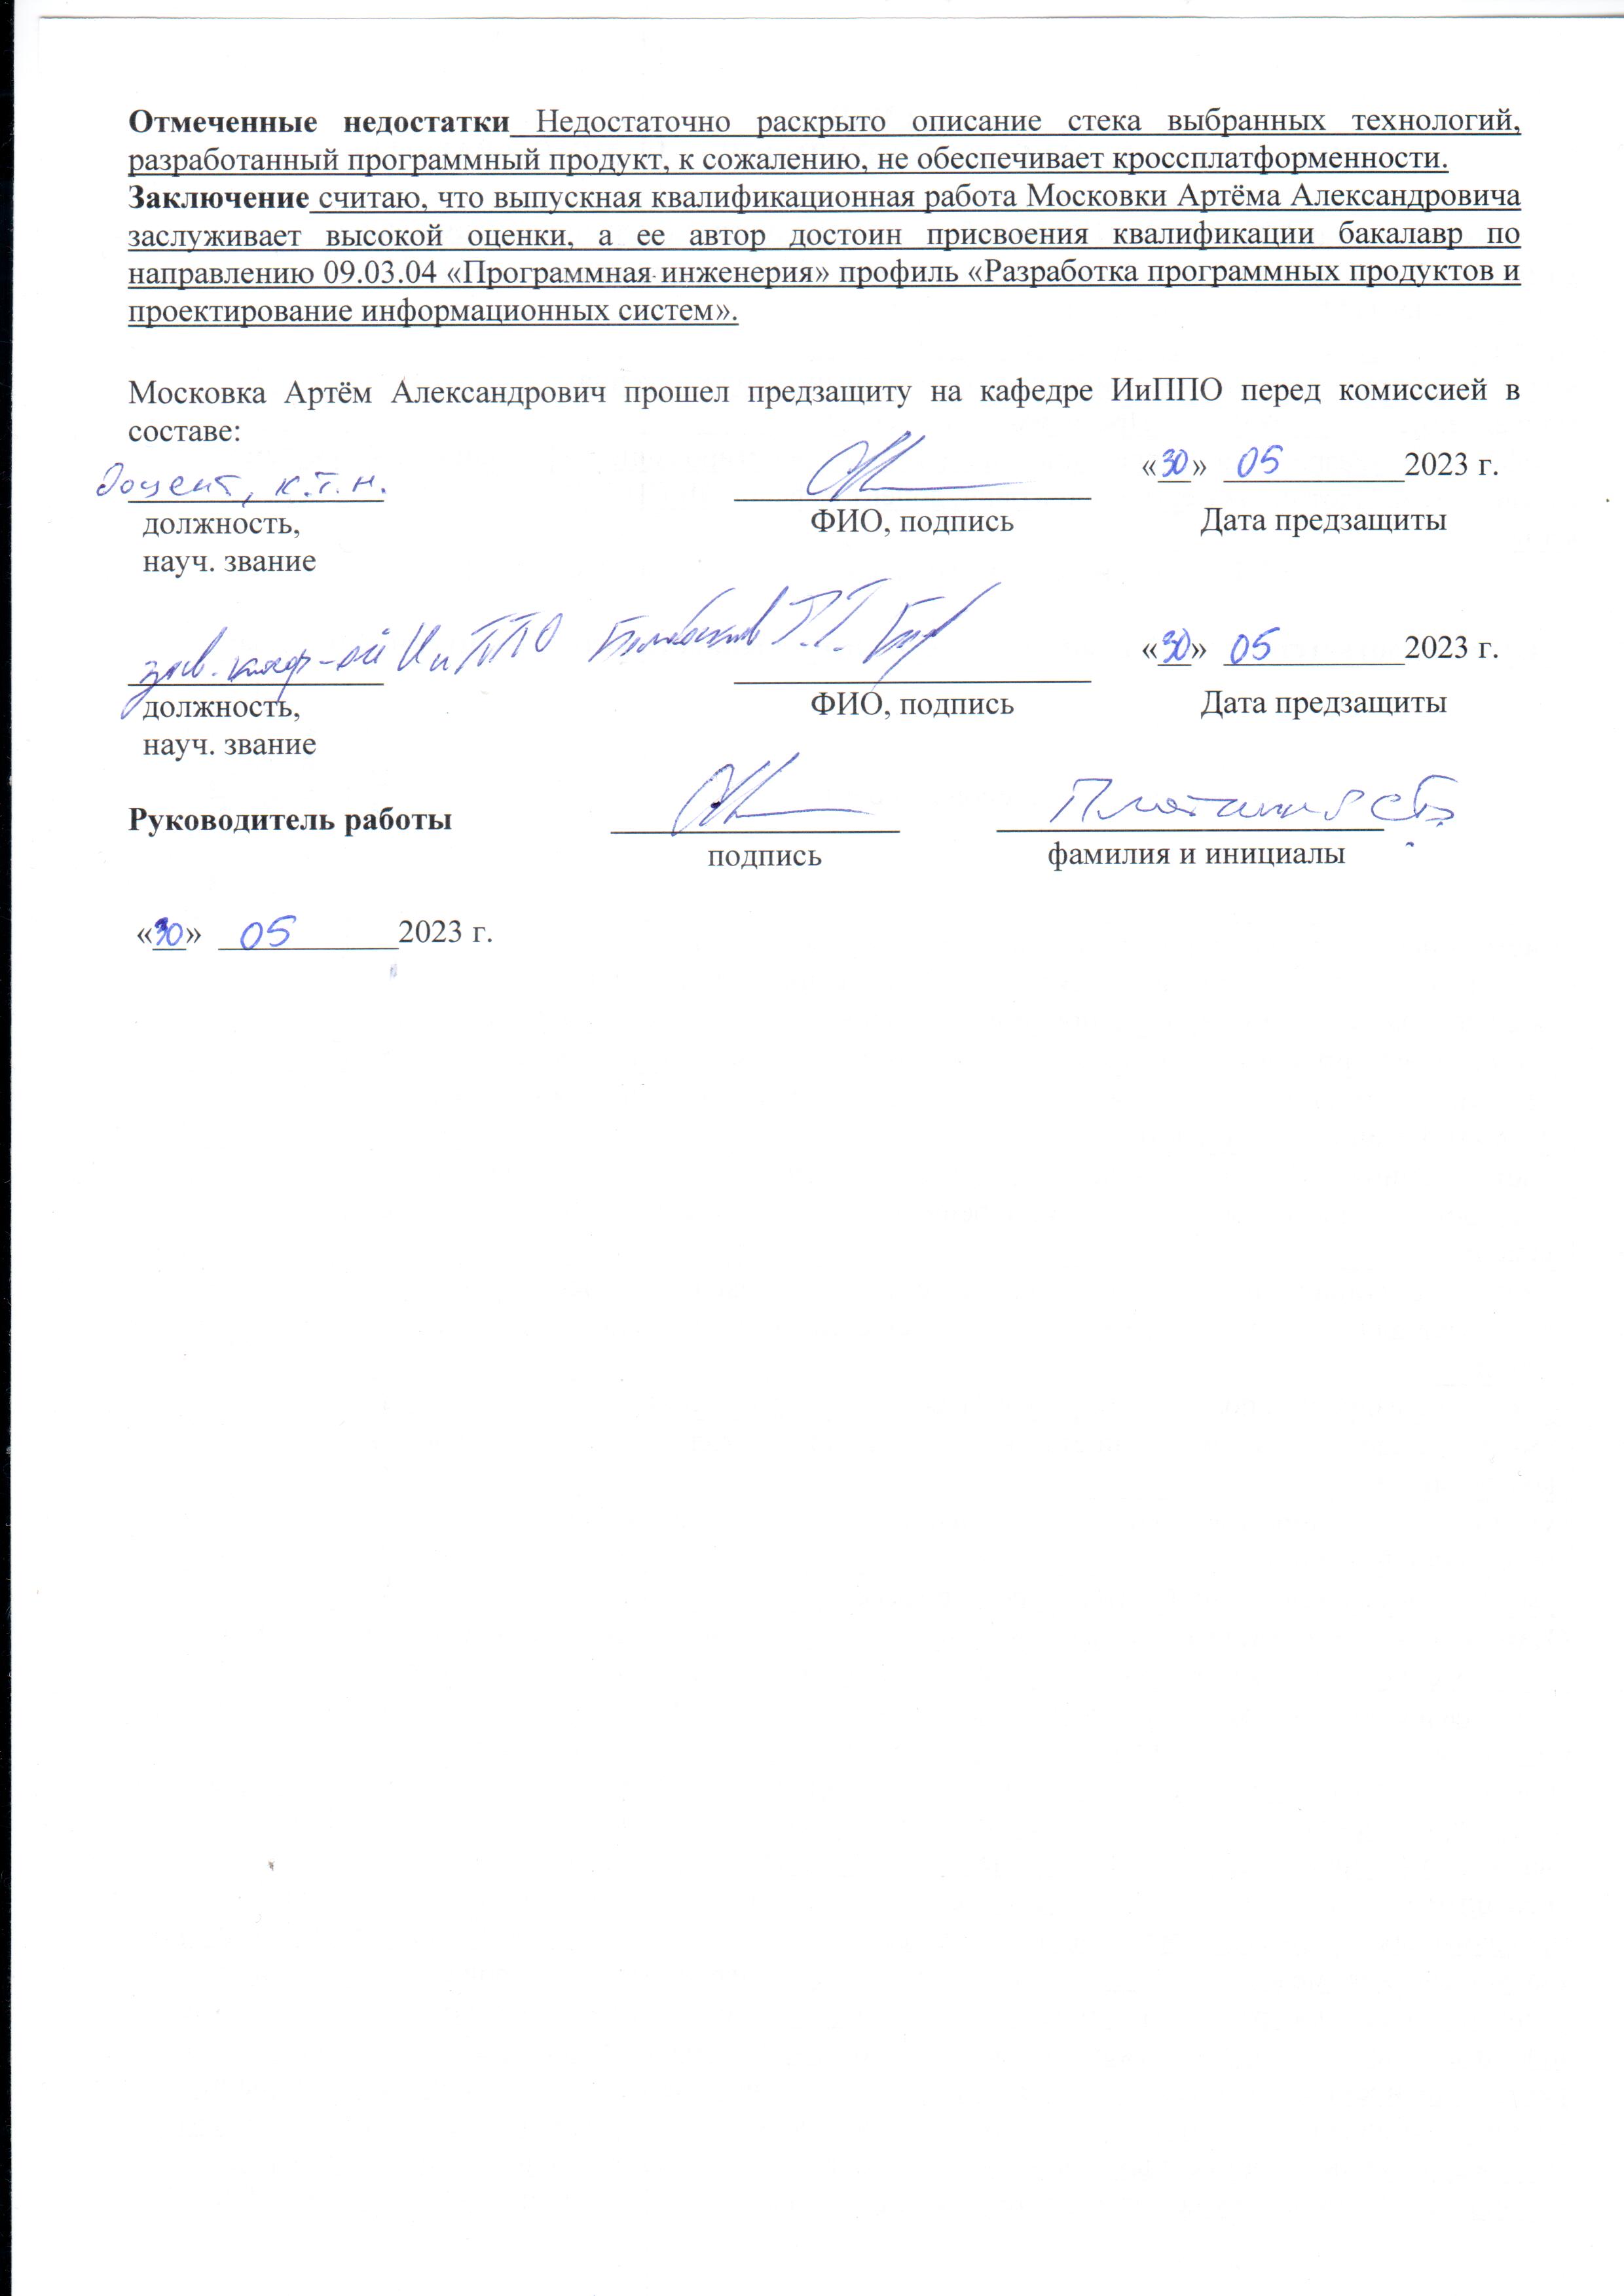 Отмеченные недостатки Недостаточно раскрыто описание стека выбранных технологий,
разработанный программный продукт, к сожалению, не обеспечивает кроссплатформенности.
Заключение считаю, что выпускная квалификационная работа Московки Артёма Александровича
заслуживает высокой оценки, а ее автор достоин присвоения квалификации бакалавр по
направлению 09.03.04 «Программная инженерия» профиль «Разработка программных продуктов и
проектирование информационных систем».
Московка Артём Александрович прошел предзащиту на кафедре ИиППО перед комиссией в
составе:
доцент, к.т.н. «30» 05 2023 г.
должность, ФИО, подпись Дата предзащиты
науч. звание
зав. каф-ой ИиППО «30» 05 2023 г.
должность, ФИО, подпись Дата предзащиты
науч. звание
Руководитель работы
подпись фамилия и инициалы
«30» 05 2023 г.